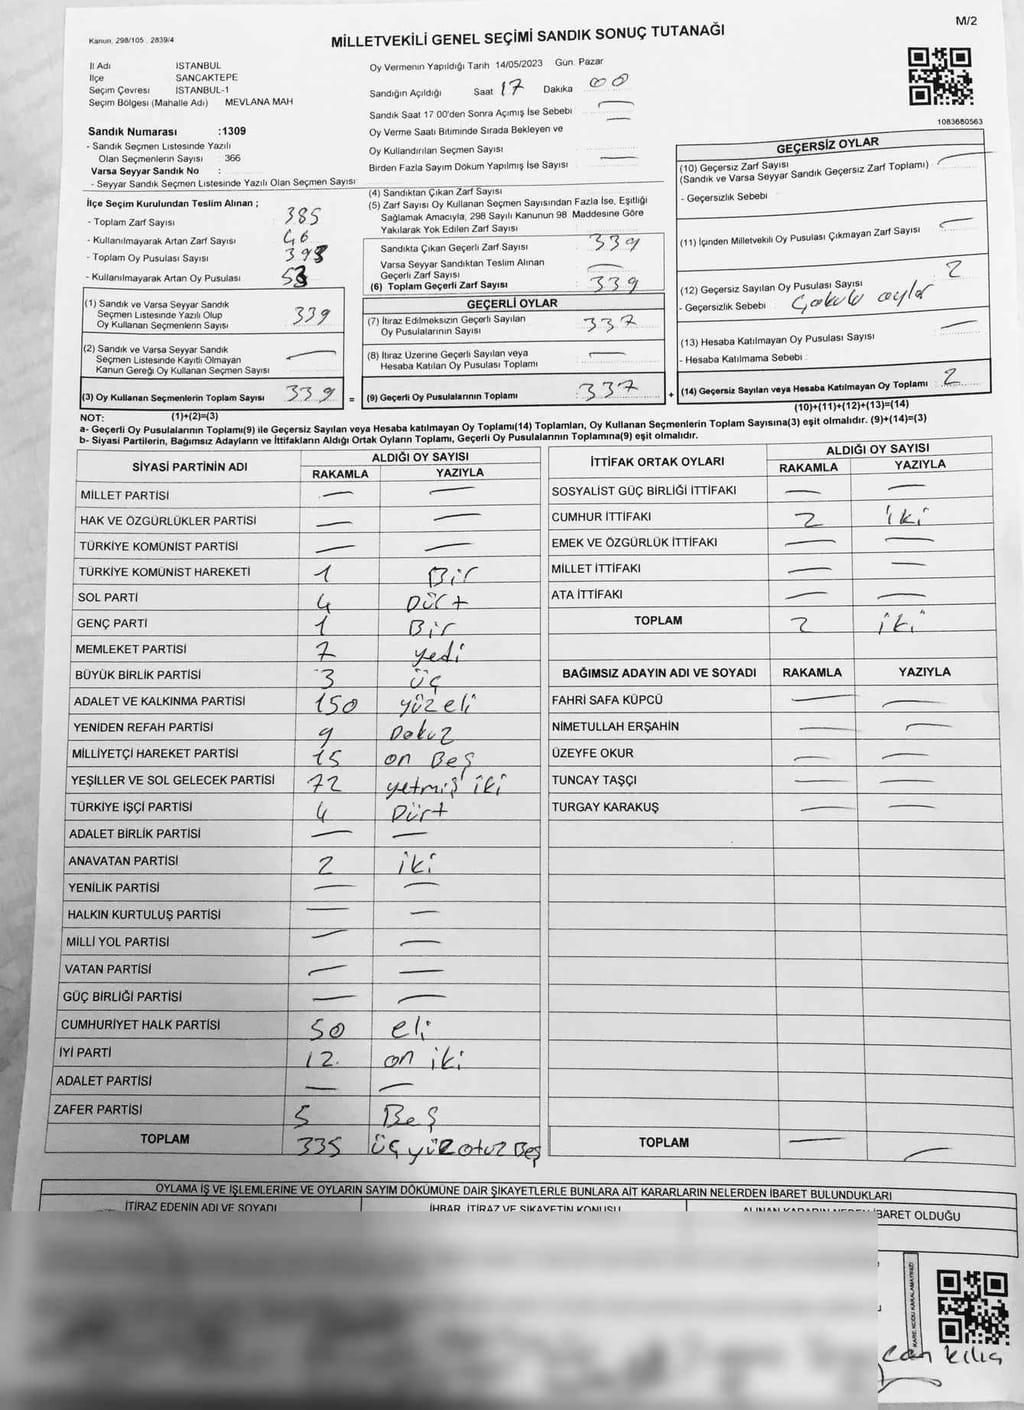 Kanun, 298/105, 2839/4
MİLLETVEKİLİ GENEL SEÇİMİ SANDIK SONUÇ TUTANAĞI
M/2
İl Adı İSTANBUL
İlçe SANCAKTEPE
Seçim Çevresi İSTANBUL-1
Seçim Bölgesi (Mahalle Adı) MEVLANA MAH
Sandık Numarası :1309
- Sandık Seçmen Listesinde Yazılı
Olan Seçmenlerin Sayısı : 366
Varsa Seyyar Sandık No :
- Seyyar Sandık Seçmen Listesinde Yazılı Olan Seçmen Sayısı
İlçe Seçim Kurulundan Teslim Alınan ;
- Toplam Zarf Sayısı 385
- Kullanılmayarak Artan Zarf Sayısı 46
- Toplam Oy Pusulası Sayısı
- Kullanılmayarak Artan Oy Pusulası
(1) Sandık ve Varsa Seyyar Sandık
Seçmen Listesinde Yazılı Olup
Oy Kullanan Seçmenlerin Sayısı 339
(2) Sandık ve Varsa Seyyar Sandık
Seçmen Listesinde Kayıtlı Olmayan
Kanun Gereği Oy Kullanan Seçmen Sayısı —
(3) Oy Kullanan Seçmenlerin Toplam Sayısı 339 =
Oy Vermenin Yapıldığı Tarih 14/05/2023 Gün Pazar
Sandığın Açıldığı Saat 17 Dakika 00
Sandık Saat 17 00'den Sonra Açımış İse Sebebi —
Oy Verme Saati Bitiminde Sırada Bekleyen ve
Oy Kullandırılan Seçmen Sayısı —
Birden Fazla Sayım Döküm Yapılmış İse Sayısı —
(4) Sandıktan Çıkan Zarf Sayısı
(5) Zarf Sayısı Oy Kullanan Seçmen Sayısından Fazla İse, Eşitliği
Sağlamak Amacıyla, 298 Sayılı Kanunun 98 Maddesine Göre
Yakılarak Yok Edilen Zarf Sayısı
Sandıkta Çıkan Geçerli Zarf Sayısı 339
Varsa Seyyar Sandıktan Teslim Alınan
Geçerli Zarf Sayısı —
(6) Toplam Geçerli Zarf Sayısı 339
GEÇERLİ OYLAR
(7) İtiraz Edilmeksizin Geçerli Sayılan
Oy Pusulalarının Sayısı 337
(8) İtiraz Üzerine Geçerli Sayılan veya
Hesaba Katılan Oy Pusulası Toplamı —
(9) Geçerli Oy Pusulalarının Toplamı 337 +
1083680563
GEÇERSİZ OYLAR
(10) Geçersiz Zarf Sayısı
(Sandık ve Varsa Seyyar Sandık Geçersiz Zarf Toplamı) —
- Geçersizlik Sebebi
(11) İçinden Milletvekili Oy Pusulası Çıkmayan Zarf Sayısı —
(12) Geçersiz Sayılan Oy Pusulası Sayısı 2
- Geçersizlik Sebebi : oylar
(13) Hesaba Katılmayan Oy Pusulası Sayısı —
- Hesaba Katılmama Sebebi :
(14) Geçersiz Sayılan veya Hesaba Katılmayan Oy Toplamı 2
NOT: (1)+(2)=(3)
(10)+(11)+(12)+(13)=(14)
a- Geçerli Oy Pusulalarının Toplamı(9) ile Geçersiz Sayılan veya Hesaba katılmayan Oy Toplamı(14) Toplamları, Oy Kullanan Seçmenlerin Toplam Sayısına(3) eşit olmalıdır. (9)+(14)=(3)
b- Siyasi Partilerin, Bağımsız Adayların ve İttifakların Aldığı Ortak Oyların Toplamı, Geçerli Oy Pusulalarının Toplamına(9) eşit olmalıdır.
SİYASİ PARTİNİN ADI ALDIĞI OY SAYISI
RAKAMLA YAZIYLA
MİLLET PARTİSİ — —
HAK VE ÖZGÜRLÜKLER PARTİSİ — —
TÜRKİYE KOMÜNİST PARTİSİ — —
TÜRKİYE KOMÜNİST HAREKETİ 1 Bir
SOL PARTİ 4 Dört
GENÇ PARTİ 1 Bir
MEMLEKET PARTİSİ 7 yedi
BÜYÜK BİRLİK PARTİSİ 3 üç
ADALET VE KALKINMA PARTİSİ 150 yüz eli
YENİDEN REFAH PARTİSİ 9 Dokuz
MİLLİYETÇİ HAREKET PARTİSİ 15 on Beş
YEŞİLLER VE SOL GELECEK PARTİSİ 72 yetmiş iki
TÜRKİYE İŞÇİ PARTİSİ 4 Dört
ADALET BİRLİK PARTİSİ — —
ANAVATAN PARTİSİ 2 iki
YENİLİK PARTİSİ — —
HALKIN KURTULUŞ PARTİSİ — —
MİLLİ YOL PARTİSİ — —
VATAN PARTİSİ — —
GÜÇ BİRLİĞİ PARTİSİ — —
CUMHURİYET HALK PARTİSİ 50 eli
İYİ PARTİ 12 on iki
ADALET PARTİSİ — —
ZAFER PARTİSİ 5 Beş
TOPLAM 335 üç yüz otuz Beş
İTTİFAK ORTAK OYLARI ALDIĞI OY SAYISI
RAKAMLA YAZIYLA
SOSYALİST GÜÇ BİRLİĞİ İTTİFAKI — —
CUMHUR İTTİFAKI 2 iki
EMEK VE ÖZGÜRLÜK İTTİFAKI — —
MİLLET İTTİFAKI — —
ATA İTTİFAKI — —
TOPLAM 2 iki
BAĞIMSIZ ADAYIN ADI VE SOYADI RAKAMLA YAZIYLA
FAHRİ SAFA KÜPCÜ — —
NİMETULLAH ERŞAHİN — —
ÜZEYFE OKUR — —
TUNCAY TAŞÇI — —
TURGAY KARAKUŞ — —
TOPLAM — —
OYLAMA İŞ VE İŞLEMLERİNE VE OYLARIN SAYIM DÖKÜMÜNE DAİR ŞİKAYETLERLE BUNLARA AİT KARARLARIN NELERDEN İBARET BULUNDUKLARI
İTİRAZ EDENİN ADI VE SOYADI İHBAR, İTİRAZ VE ŞİKAYETİN KONUSU ALINAN KARARIN NEDEN İBARET OLDUĞU